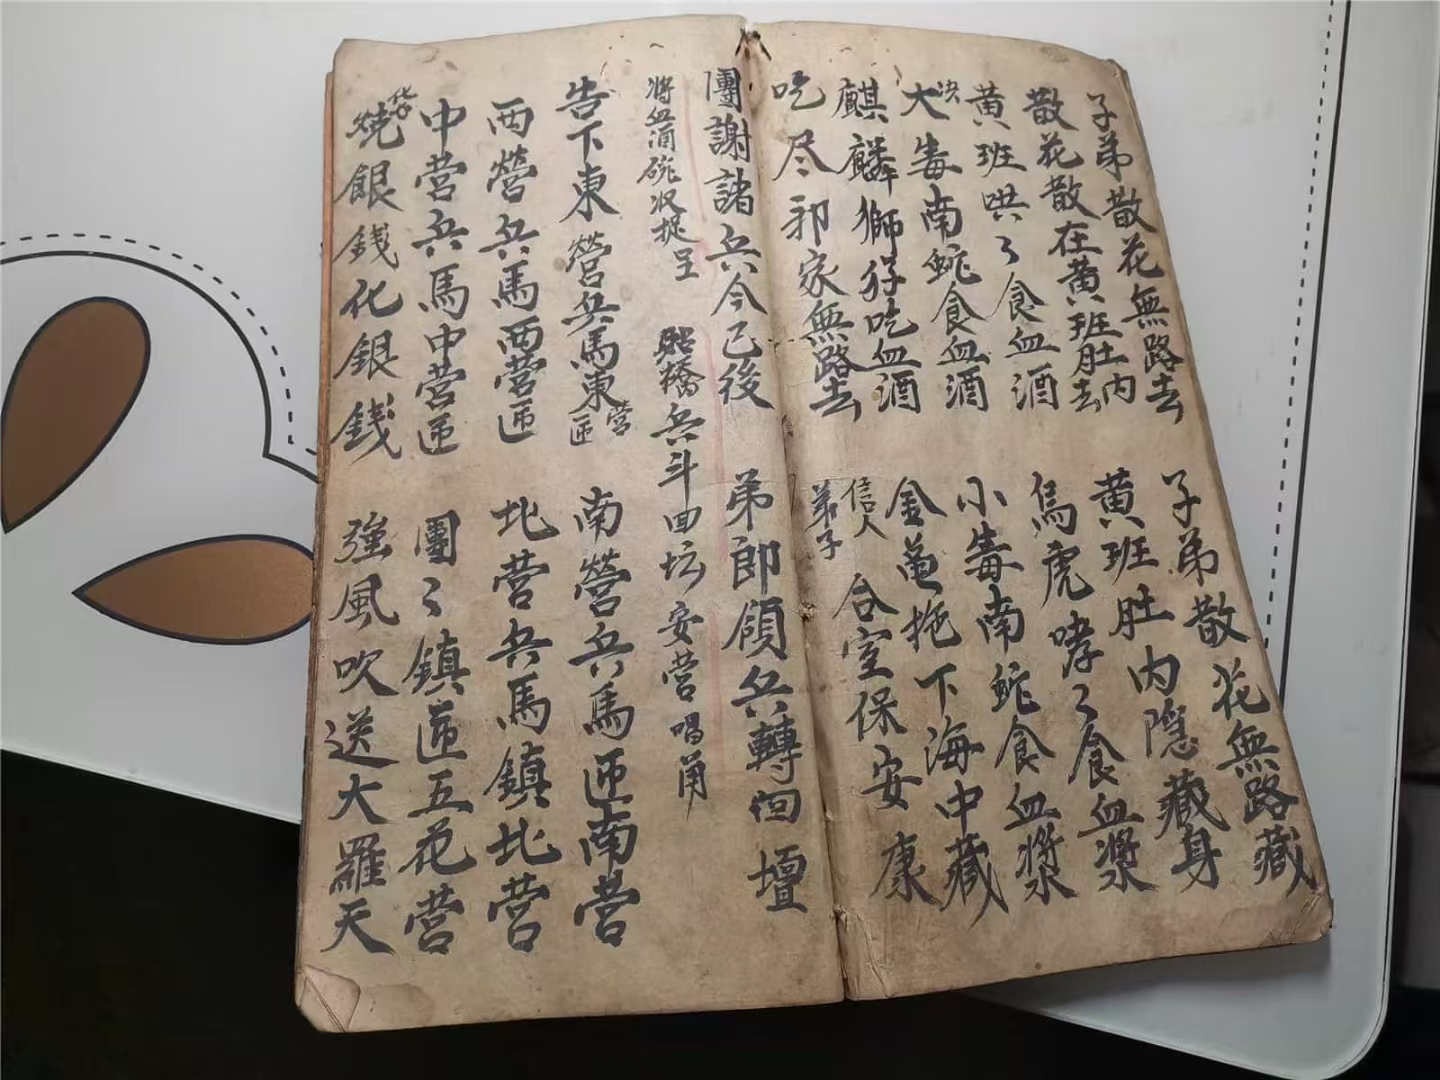 子弟散花無路去 子弟散花無路藏
散花散在黄班肚内去 黄班肚内隱藏身
黄班哄〻食血酒 烏虎哮〻食血漿
大毒南蛇食血酒 小毒南蛇食血漿
决
麒麟獅犴吃血酒 金亀拖下海中藏
吃尽邪家無路去 信人 弟子 合室保安康
團謝諸兵今已後 弟郎領兵轉回壇
將血酒碗収捉呈 照橋兵斗回坛安营唱甬
告下東營兵馬東營匝 南營兵馬匝南营
西營兵馬西营匝 北营兵馬鎮北营
中营兵馬中营匝 團〻鎮匝五花营
燒銀錢化銀錢 強風吹送大羅天